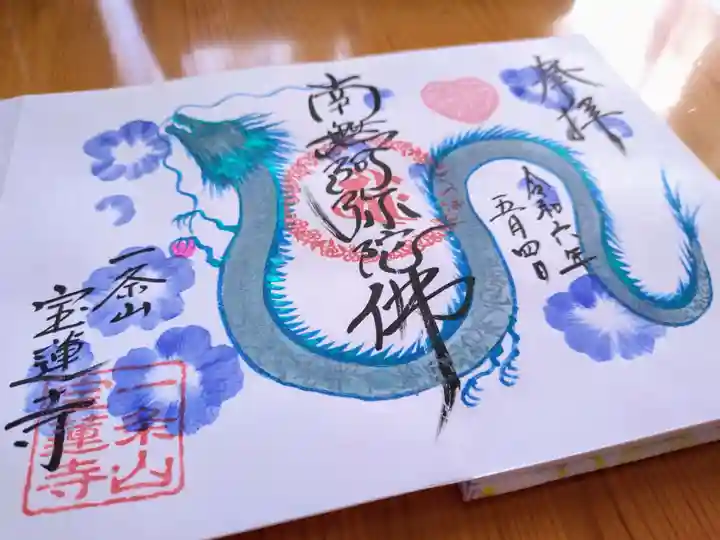 奉拝
令和六年
五月四日
南無阿弥陀佛
一条山
宝蓮寺
一条山
宝蓮寺